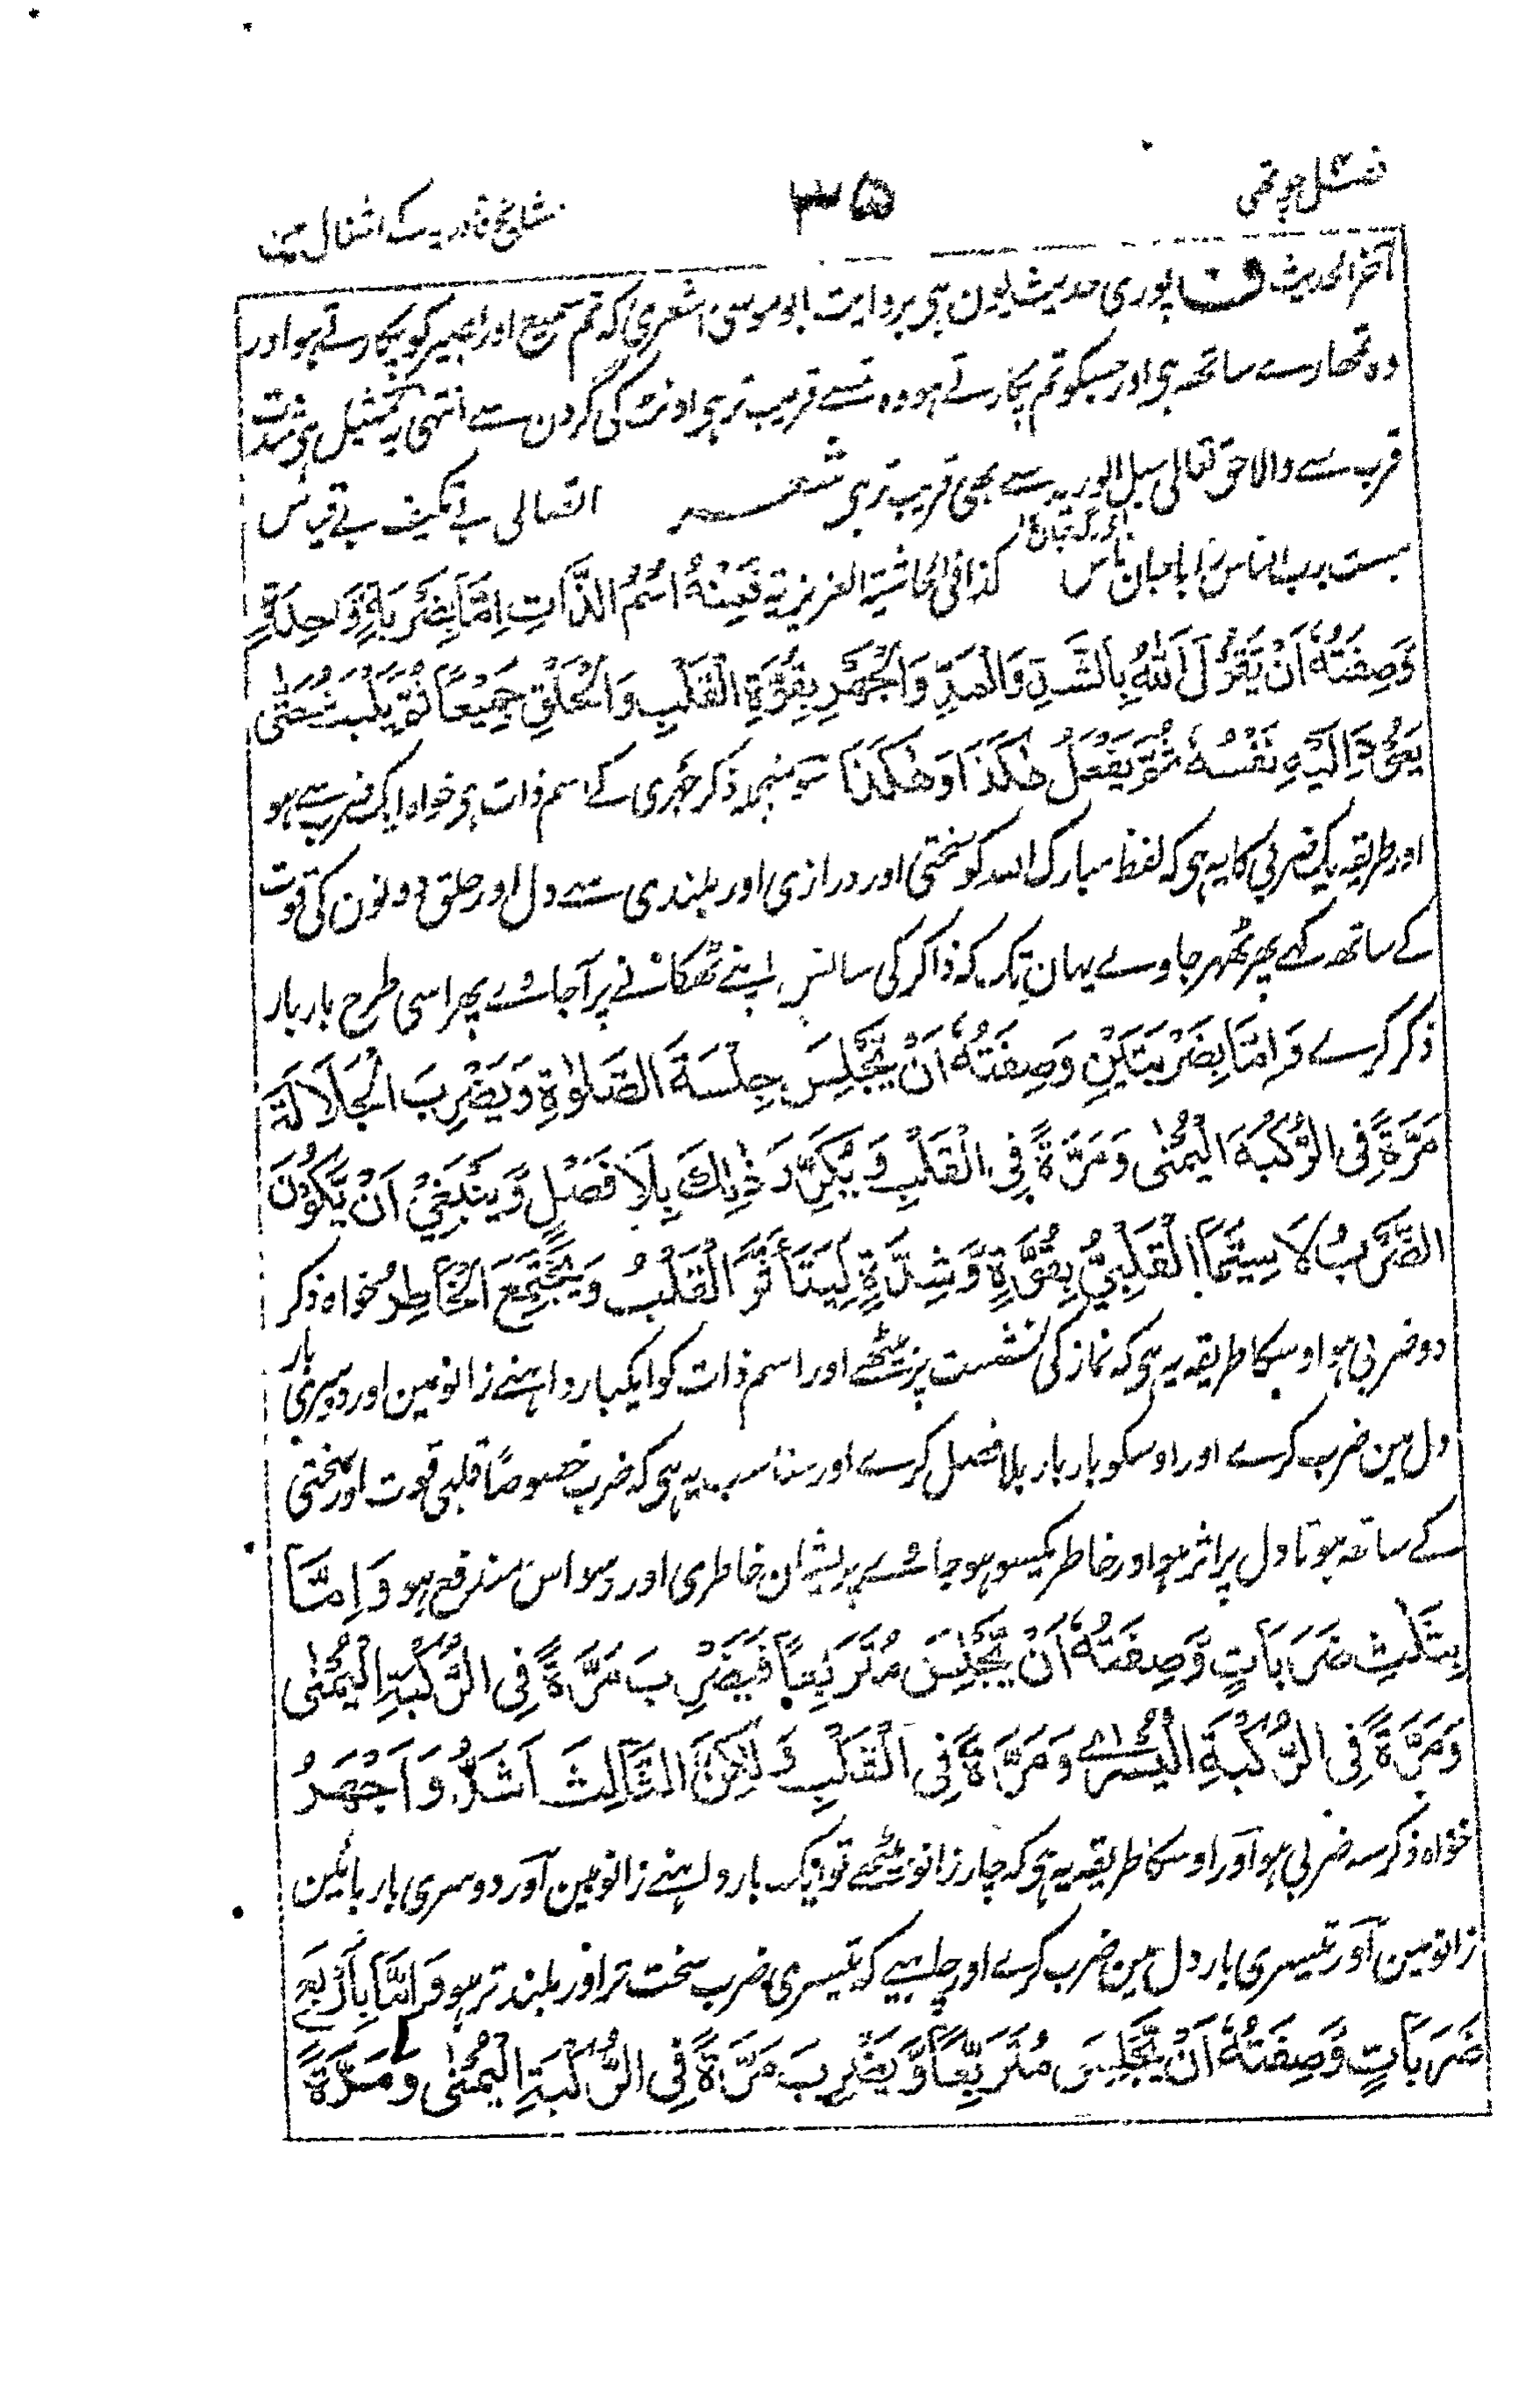 فصل چوتھی
۳۵
مشایخ قادریہ کے اشغال مین
آخر الحدیث ف پوری حدیث یون ہی بروایت ابو موسی اشعری کہ تم سمیع اور بصیر کو پکارتے ہو اور
وہ تمھارے ساتھ ہی اور جسکو تم پکارتے ہو وہ تمسے قریب تر ہی اونٹ کی گردن سے انتہی یہ تمثیل ہی شدت
قرب سے والا حق تعالی حبل الورید سے بھی قریب تر ہی شعر اتصالی بے تکیف بے قیاس
ہست رب الناس را با جان ناس کذا فی الحاشیۃ العزیزیۃ فَمِنْهُ اسْمُ الذَّاتِ اِمَّا بِضَرْبَةٍ وَّاحِدَةٍ
وَصِفَتُهٗ اَنْ يَّقُوْلَ اَللّٰهُ بِالشَّدِّ وَالْمَدِّ وَالْجَهْرِ بِقُوَّةِ الْقَلْبِ وَالْحَلْقِ جَمِيْعًا ثُمَّ يَلْبَثُ حَتّٰى
يَعُوْدَ اِلَيْهِ نَفْسُهٗ ثُمَّ يَفْعَلُ هٰكَذَا وَهٰكَذَا سو منجملہ ذکر جہری کے اسم ذات ہی خواہ ایک ضرب سے ہو
اور طریقہ یک ضربی کا یہ ہی کہ لفظ مبارک اللہ کو سختی اور درازی اور بلندی سے دل اور حلق دونون کی قوت
کے ساتھ کہے پھر ٹھہر جاوے یہان تک کہ ذاکر کی سانس اپنے ٹھکانے پر آجاوے پھر اسی طرح بار بار
ذکر کرے وَاِمَّا بِضَرْبَتَيْنِ وَصِفَتُهٗ اَنْ يَّجْلِسَ جِلْسَةَ الصَّلٰوةِ وَيَضْرِبَ الْجَلَالَةَ
مَرَّةً فِى الرُّكْبَةِ الْيُمْنٰى وَمَرَّةً فِى الْقَلْبِ وَيُكَرِّرَ ذٰلِكَ بِلَا فَصْلٍ وَّيَنْبَغِيْ اَنْ يَّكُوْنَ
الضَّرْبُ لَا سِيَّمَا الْقَلْبِيُّ بِقُوَّةٍ وَّشِدَّةٍ لِيَتَأَثَّرَ الْقَلْبُ وَيَجْتَمِعَ الْخَاطِرُ خواہ ذکر
دو ضربی ہو اوسکا طریقہ یہ ہی کہ نماز کی نشست پر بیٹھے اور اسم ذات کو ایکبار داہنے زانو مین اور دوسری بار
دل مین ضرب کرے اور اوسکو بار بار بلا فصل کرے اور مناسب یہ ہی کہ ضرب خصوصًا قلبی قوت اور سختی
کے ساتھ ہو تا دل پر اثر ہو اور خاطر یکسو ہو جاوے پریشان خاطری اور وسواس مندفع ہو وَاِمَّا
بِثَلٰثِ ضَرَبَاتٍ وَّصِفَتُهٗ اَنْ يَّجْلِسَ مُتَرَبِّعًا فَيَضْرِبَ مَرَّةً فِى الرُّكْبَةِ الْيُمْنٰى
وَمَرَّةً فِى الرُّكْبَةِ الْيُسْرٰى وَمَرَّةً فِى الْقَلْبِ وَلْيَكُنِ الثَّالِثُ اَشَدَّ وَاَجْهَرَ
خواہ ذکر سہ ضربی ہو اور اوسکا طریقہ یہ ہی کہ چار زانو بیٹھے تو ایک بار داہنے زانو مین اور دوسری بار بائین
زانو مین اور تیسری بار دل مین ضرب کرے اور چاہیے کہ تیسری ضرب سخت تر اور بلند تر ہو وَاِمَّا بِاَرْبَعِ
ضَرَبَاتٍ وَّصِفَتُهٗ اَنْ يَّجْلِسَ مُتَرَبِّعًا وَّيَضْرِبَ مَرَّةً فِى الرُّكْبَةِ الْيُمْنٰى وَمَرَّةً